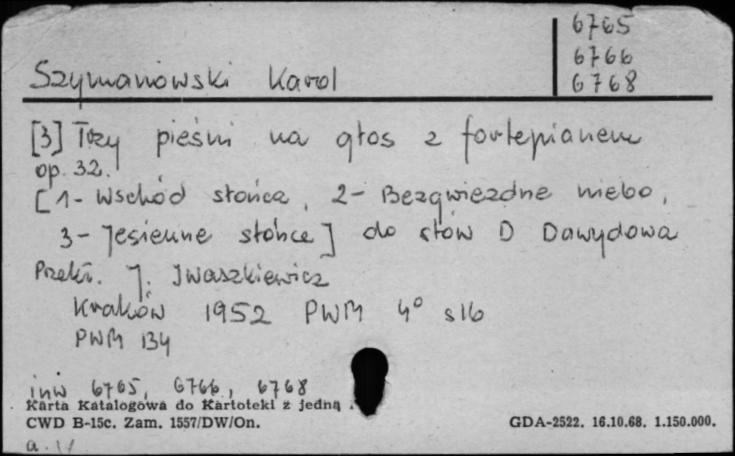 6765
6766
Szymanowski Karol 6768
[3] Trzy pieśni na głos z fortepianem
op. 32.
[1- Wschód słońca, 2- Bezgwiezdne niebo,
3- Jesienne słońce] do słów D Dawydowa
Przekł. J. Iwaszkiewicz
Kraków 1952 PWM 4° s16
PWM 134
inw 6765, 6766, 6768
Karta Katalogowa do Kartoteki z jedną
CWD B-15c. Zam. 1557/DW/On. GDA-2522. 16.10.68. 1.150.000.